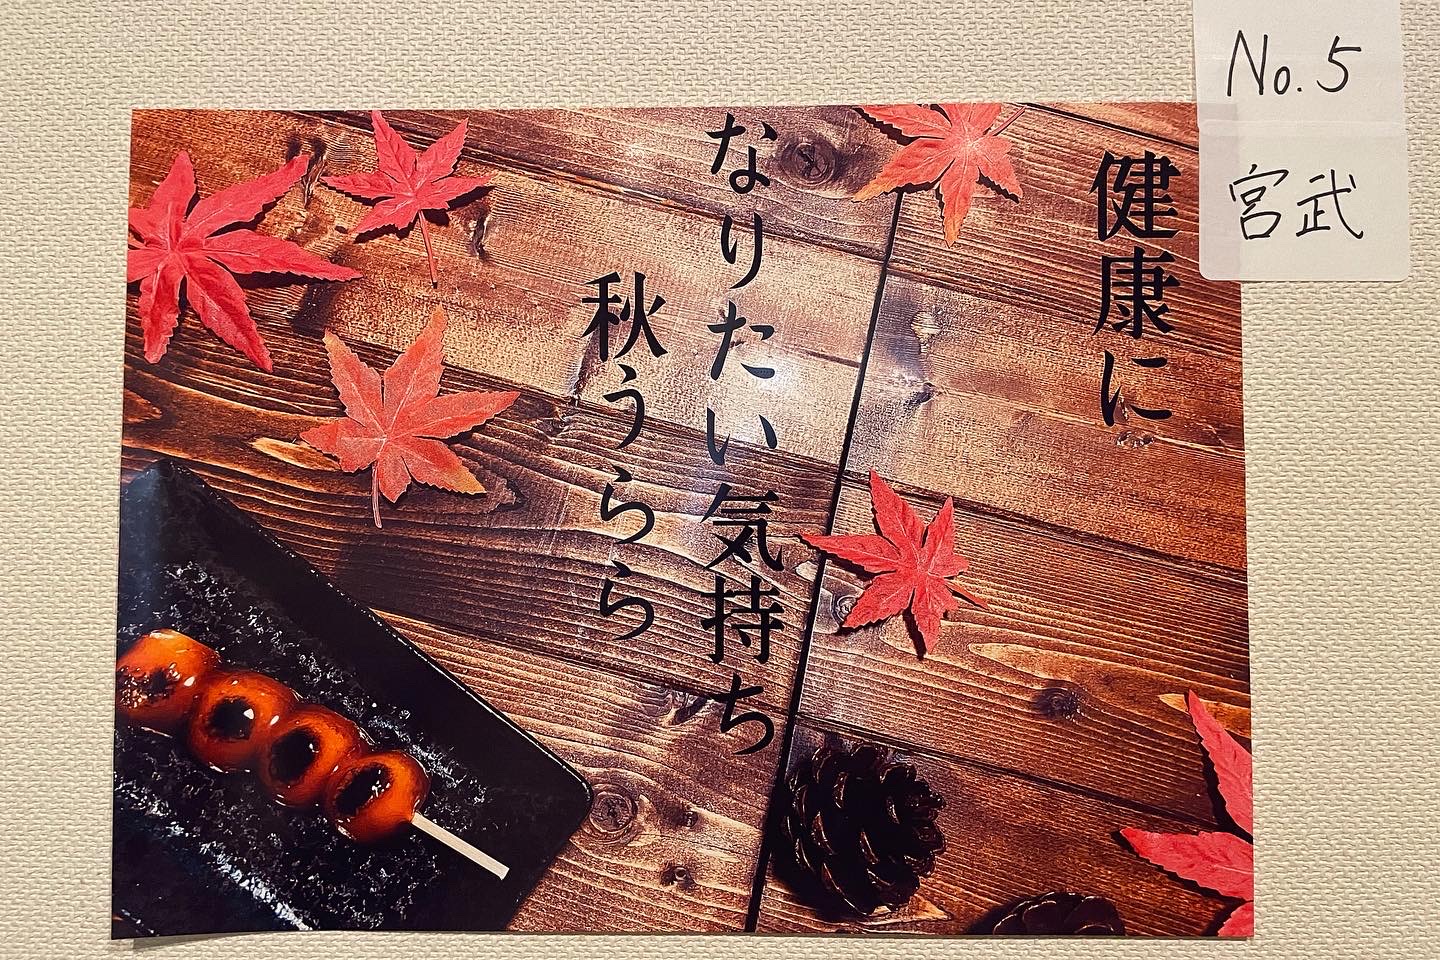 No.5
宮武
健康に
なりたい気持ち
秋うらら